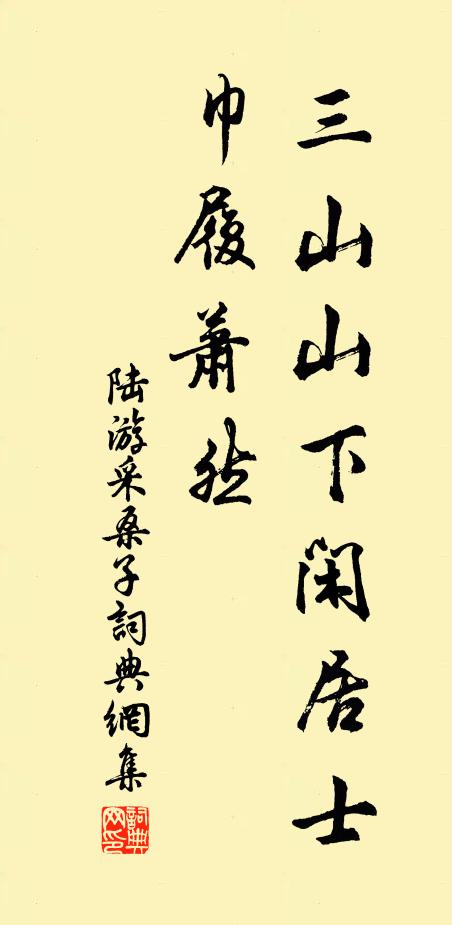 三山山下闲居士
巾履萧然
陆游采桑子詞典網集
詞典网印